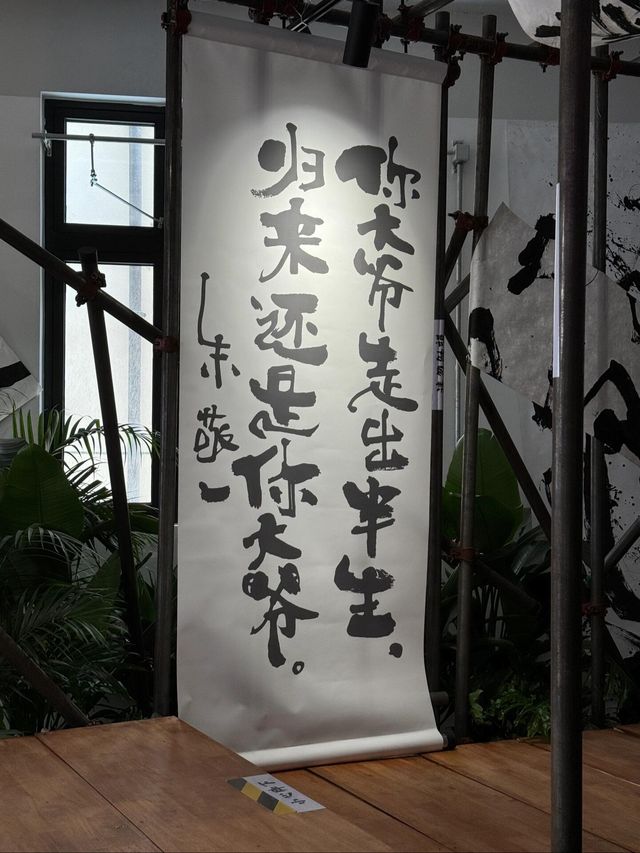 你大爷走出半生.
归来还是你大爷。
朱敬一